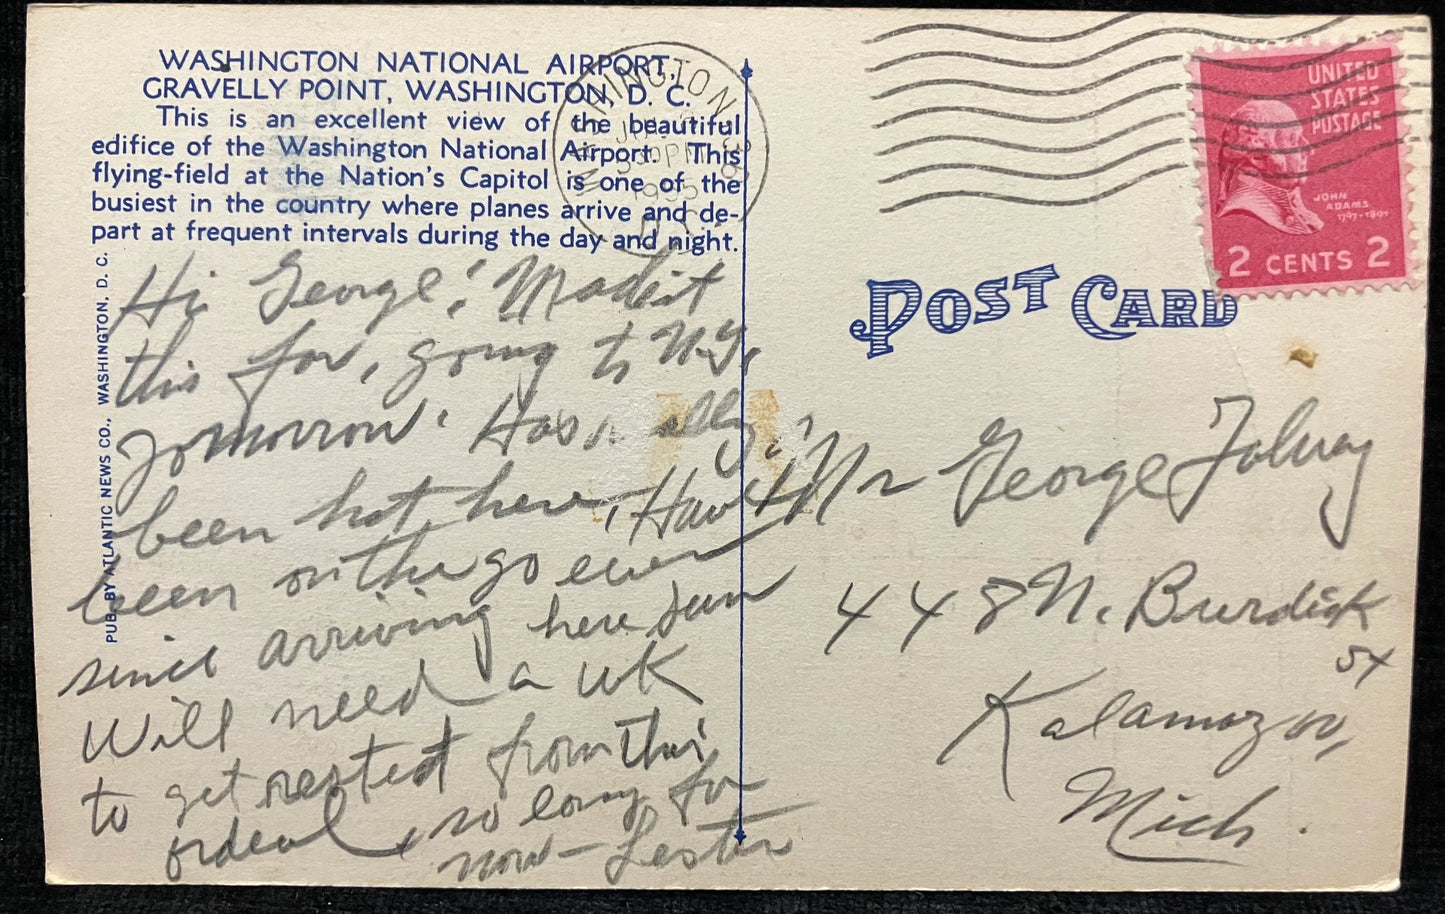 WASHINGTON NATIONAL AIRPORT,
GRAVELLY POINT, WASHINGTON, D. C.
This is an excellent view of the beautiful
edifice of the Washington National Airport. This
flying-field at the Nation's Capitol is one of the
busiest in the country where planes arrive and de-
part at frequent intervals during the day and night.
PUB. BY ATLANTIC NEWS CO., WASHINGTON, D. C.
Hi George! Madeit
this far, going to N.Y,
tomorrow. Has really
been hot here, Have
been on the go ever
since arriving here
Will need a wk
to get rested from this
ordeal, so long for
now – Lester
WASHINGTON
1955
D.C.
UNITED
STATES
POSTAGE
JOHN
ADAMS
1797-1801
2 CENTS 2
POST CARD
Mr George Tolway
448 N. Burdick
St
Kalamazoo,
Mich.